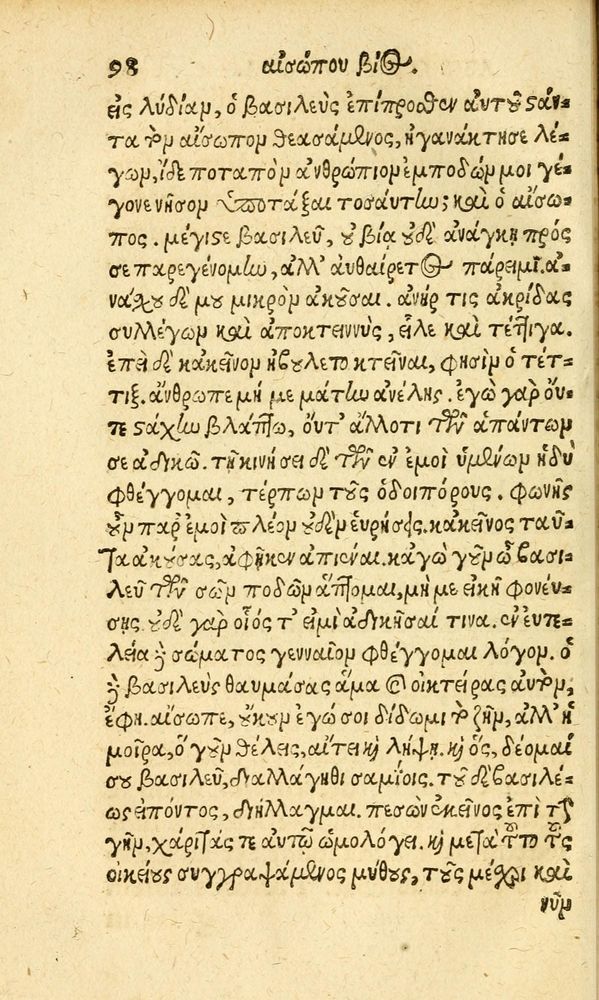 98 αἰσώπου βίος.
εἰς λυδίαν, ὁ βασιλεὺς ἐπίπροσθεν αὐτοῦ στάν-
τα τὸν αἴσωπον θεασάμενος, ἠγανάκτησε λέ-
γων, ἴδε ποταπὸν ἀνθρώπιον ἐμποδών μοι γέ-
γονε νῆσον ὑποτάξαι τοσαύτην; καὶ ὁ αἴσω-
πος. μέγιστε βασιλεῦ, οὐ βία οὐδὲ ἀνάγκῃ πρός
σε παρεγενόμην, ἀλλ' αὐθαίρετος πάρειμι. ἀ-
νάσχου δέ μου μικρὸν ἀκοῦσαι. ἀνήρ τις ἀκρίδας
συλλέγων καὶ ἀποκτεννὺς, εἷλε καὶ τέττιγα.
ἐπεὶ δὲ κἀκεῖνον ἠβούλετο κτεῖναι, φησὶν ὁ τέτ-
τιξ. ἄνθρωπε μή με μάτην ἀνέλῃς. ἐγὼ γὰρ οὔ-
τε στάχυν βλάπτω, οὔτ' ἄλλό τι τῶν ἁπάντων
σε ἀδικῶ. τῇ κινήσει δὲ τῶν ἐν ἐμοὶ ὑμένων ἡδὺ
φθέγγομαι, τέρπων τοὺς ὁδοιπόρους. φωνῆς
οὖν παρ' ἐμοὶ πλέον οὐδὲν εὑρήσεις. κἀκεῖνος ταῦ-
τα ἀκούσας, ἀφῆκεν ἀπιέναι. κἀγὼ γοῦν ὦ βασι-
λεῦ τῶν σῶν ποδῶν ἅπτομαι, μή με εἰκῆ φονεύ-
σῃς. οὐδὲ γὰρ οἷός τ' εἰμὶ ἀδικῆσαί τινα. ἐν εὐτε-
λείᾳ δὲ σώματος γενναῖον φθέγγομαι λόγον. ὁ
δὲ βασιλεὺς θαυμάσας ἅμα καὶ οἰκτείρας αὐτὸν,
ἔφη. αἴσωπε, οὐκ οὖν ἐγώ σοι δίδωμι τὸ ζῆν, ἀλλ' ἡ
μοῖρα, ὃ γοῦν θέλεις, αἴτει καὶ λήψῃ. καὶ ὃς, δέομαί
σου βασιλεῦ, διαλλάγηθι σαμίοις. τοῦ δὲ βασιλέ-
ως εἰπόντος, διήλλαγμαι. πεσὼν ἐκεῖνος ἐπὶ τὴν
γῆν, χάριτάς τε αὐτῷ ὡμολόγει. καὶ μετὰ τοῦτο τοὺς
οἰκείους συγγραψάμενος μύθους, τοὺς μέχρι καὶ
νῦν